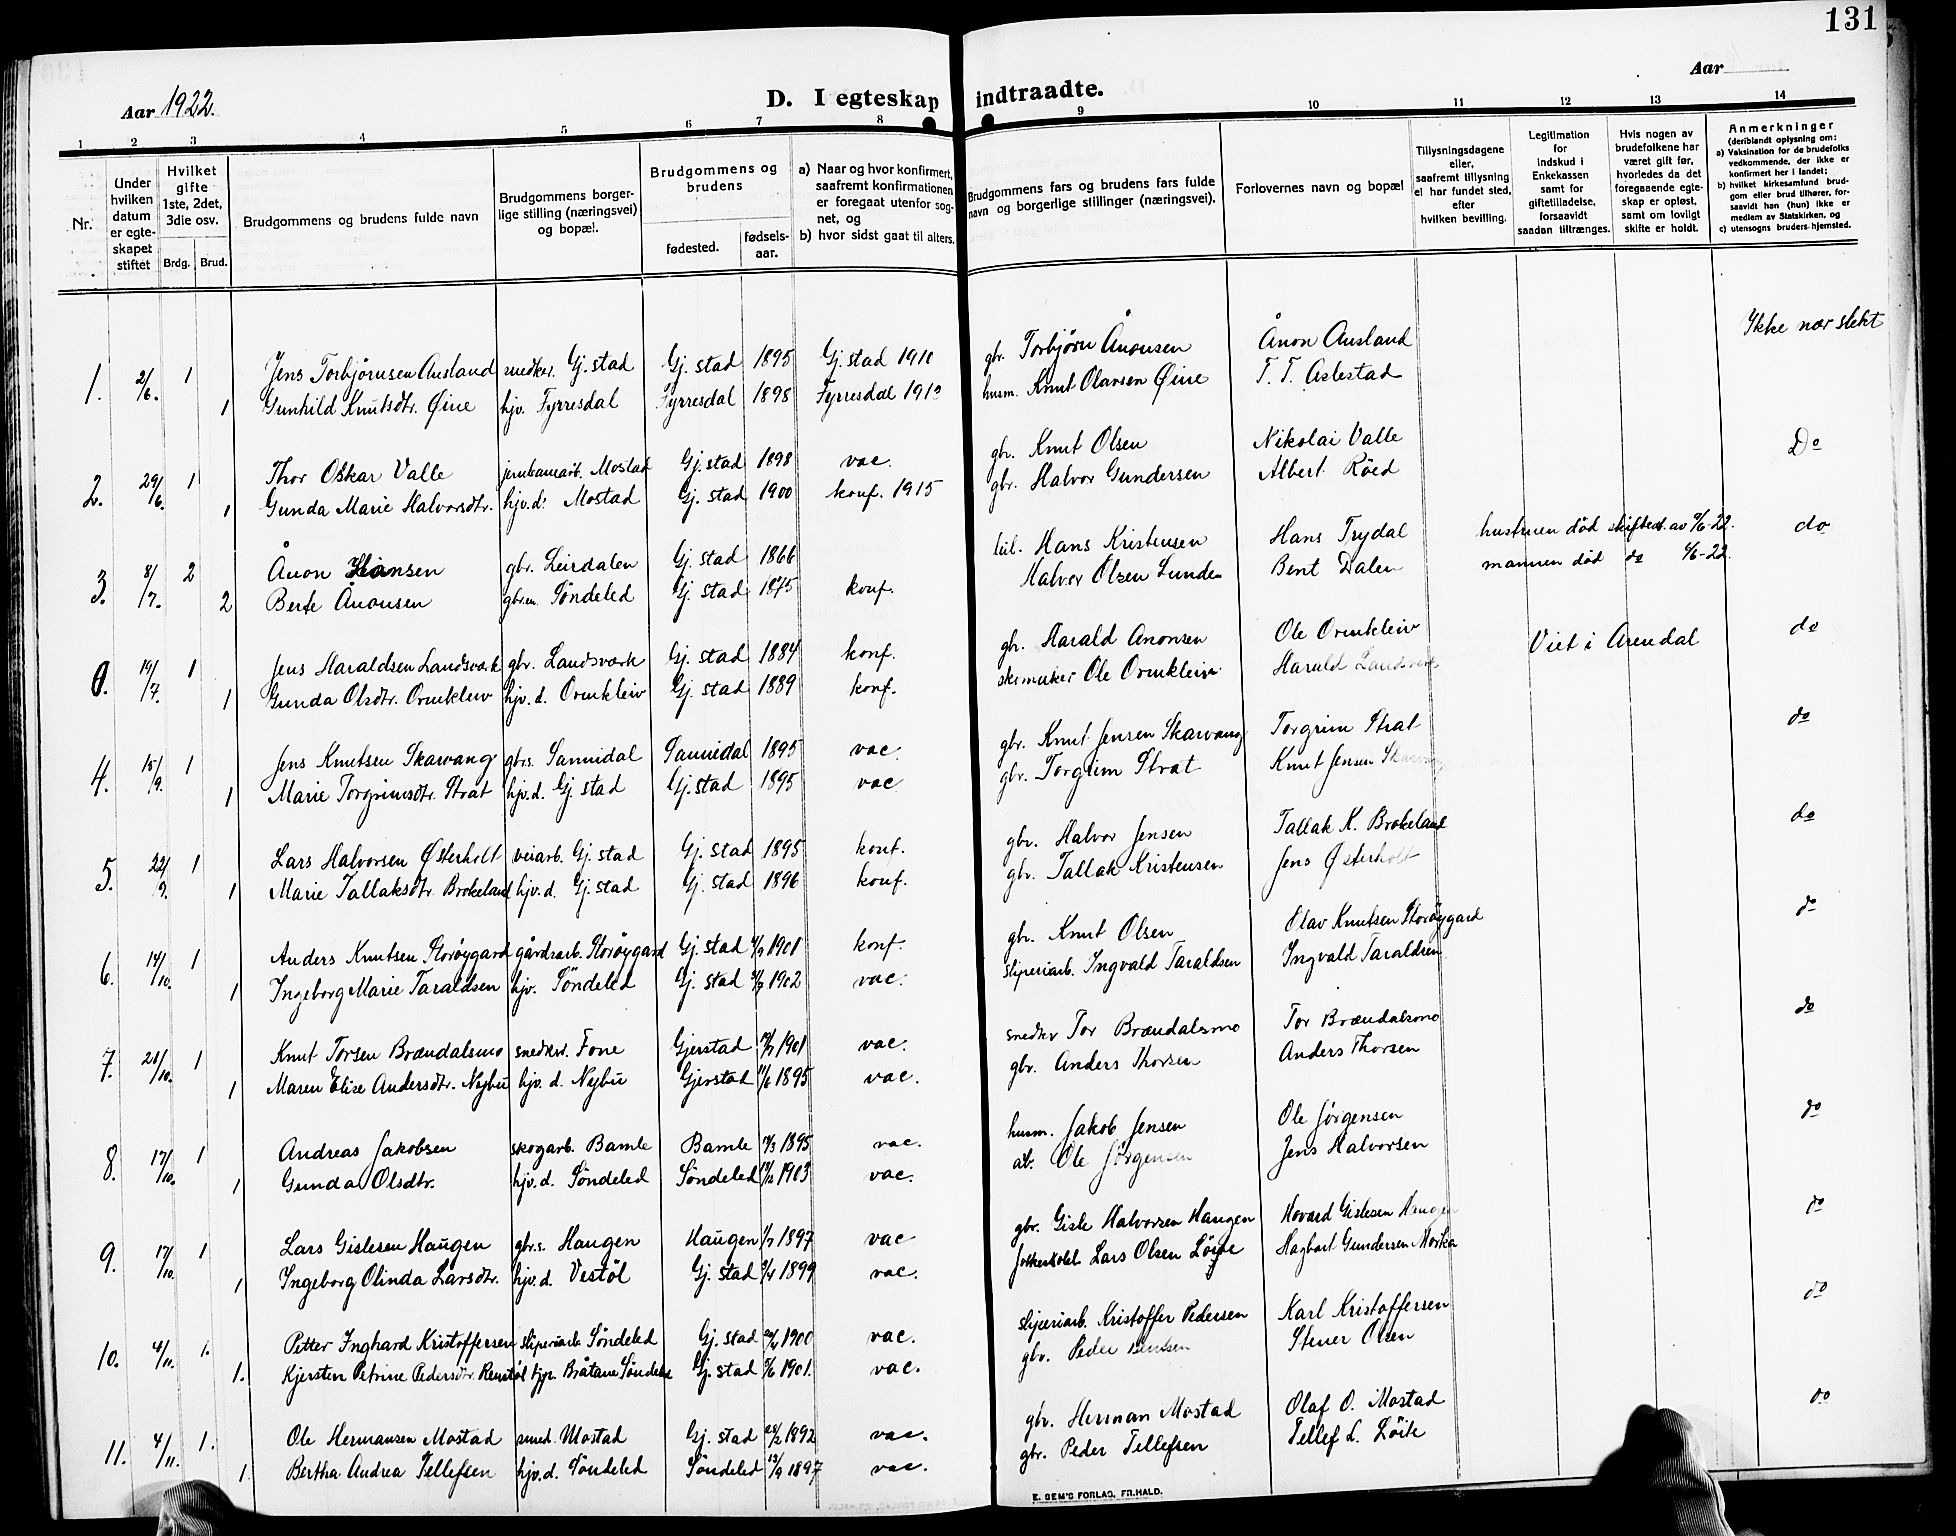 131
Aar 1922.
D. I egteskap indtraadte.
Aar
1 2 3 4 5 6 7 8 9 10 11 12 13 14
Nr.
Under hvilken datum er egteskapet stiftet
Hvilket gifte 1ste, 2det, 3die osv.
Brdg. Brud.
Brudgommens og brudens fulde navn
Brudgommens borgerlige stilling (næringsvei) og bopæl.
Brudgommens og brudens
fødested. fødselsaar.
a) Naar og hvor konfirmert, saafremt konfirmationen er foregaat utenfor sognet, og
b) hvor sidst gaat til alters.
Brudgommens fars og brudens fars fulde navn og borgerlige stillinger (næringsvei).
Forlovernes navn og bopæl
Tillysningsdagene eller, saafremt tillysning ei har fundet sted, efter hvilken bevilling.
Legitimation for indskud i Enkekassen samt for giftetilladelse, forsaavidt saadan tiltrænges.
Hvis nogen av brudefolkene har været gift før, hvorledes da det foregaaende egteskap er opløst, samt om lovligt skifte er holdt.
Anmerkninger (deriblandt oplysning om: a) Vaksination for de brudefolks vedkommende, der ikke er konfirmert her i landet; b) hvilket kirkesamfund brudgom eller brud tilhører, forsaavidt han (hun) ikke er medlem av Statskirken, og c) utensogns bruders hjemsted.
1. 2/6. 1 Jens Torbjørnsen Ausland snedker. Gj.stad Gj.stad 1895 Gj.stad 1910 gbr. Torbjørn Ånonsen Ånon Ausland Ikke nær slekt
1 Gunhild Knutsdtr. Øine hjv. Fyrresdal Fyrresdal 1898 Fyrresdal 1913 husm. Knut Olavsen Øine T. T. Aslestad
2. 29/6. 1 Thor Oskar Valle jernbanearb. Mostad Gj.stad 1898 vac. gbr. Knut Olsen Nikolai Valle Do
1 Gunda Marie Halvorsdtr. hjv.d. Mostad Gj.stad 1900 konf. 1915 gbr. Halvor Gundersen Albert Röed
3. 8/7. 2 Ånon Hansen gbr. Leirdalen Gj.stad 1866 Hans Kristensen Hans Trydal hustruen død skifteat. av 9/6-22. do
2 Berte Anonsen gbr.en. Söndeled Gj.stad 1875 konf. Halvor Olsen Lunden Bent Dalen mannen død do 6/6-22.
0. 19/7. 1 Jens Haraldsen Landsverk gbr. Landsverk Gj.stad 1884 konf. gbr. Harald Anonsen Ole Ormkleiv Viet i Arendal do
1 Gunda Olsdtr. Ormkleiv hjv.d. Ormkleiv Gj.stad 1889 konf. skomaker Ole Ormkleiv Harald Landsverk
4. 15/9. 1 Jens Knutsen Skarvang gbr.s. Sannidal Sannidal 1895 vac. gbr. Knut Jensen Skarvang Torgrim Strat do
1 Marie Torgrimsdtr. Strat hjv.d. Gj.stad Gj.stad 1895 vac gbr. Torgrim Strat Knut Jensen Skarvang
5. 22/9. 1 Lars Halvorsen Østerholt veiarb. Gj.stad Gj.stad 1895 konf. gbr. Halvor Jensen Tallak K. Brokeland do
1 Marie Tallaksdtr. Brokeland hjv.d. Gj.stad Gj.stad 1896 konf. gbr. Tallak Kristensen Jens Østerholt
6. 14/10. 1 Anders Knutsen Storöygard gårdsarb. Storöygard Gj.stad 1901 konf. gbr. Knut Olsen Olav Knutsen Storöygard do
1 Ingeborg Marie Taraldsen hjv. Söndeled Gj.stad 1902 vac. sliperiarb. Ingvald Taraldsen Ingvald Taraldsen
7. 21/10. 1 Knut Torsen Brændalsmo snedker. Fone Gjerstad 1901 vac. snedker Tor Brændalsmo Tor Brændalsmo do
1 Maren Elise Andersdtr. Nybu hjv.d. Nybu Gjerstad 1895 vac. gbr. Anders Thorsen Anders Thorsen
8. 17/10. 1 Andreas Jakobsen skogarb. Bamle Bamle 1895 vac. husm. Jakob Jensen Ole Jörgensen do
1 Gunda Olsdtr. hjv.d. Söndeled Söndeled 1903 vac. arb. Ole Jörgensen Jens Halvorsen
9. 17/10. 1 Lars Gislesen Haugen gbr.s. Haugen Haugen 1897 vac gbr. Gisle Halvorsen Haugen Hovard Gislesen Haugen do
1 Ingeborg Olinda Larsdtr. hjv.d. Vestöl Gj.stad 1899 vac. Lars Olsen Löite Hagbart Gundersen Morka
10. 4/11. 1. Petter Inghard Kristoffersen sliperiarb. Söndeled Gj.stad 1900 vac. sliperiarb. Kristoffer Pedersen Karl Kristoffersen do
1. Kjersten Petrine Pedersdtr. Renstöl tjp. Bråtane Söndeled Gj.stad 1901. vac. gbr. Peder Bentsen Stener Olsen
11. 4/11. 1. Ole Hermansen Mostad smed. Mostad Gj.stad 28/2 1892 vac. gbr. Herman Mostad Olaf O. Mostad do
1. Bertha Andrea Tellefsen hjv.d. Söndeled Söndeled 13/9 1897 vac. gbr. Peder Tellefsen Tellef L. Löite
E. SEM'S FORLAG, FR.HALD.